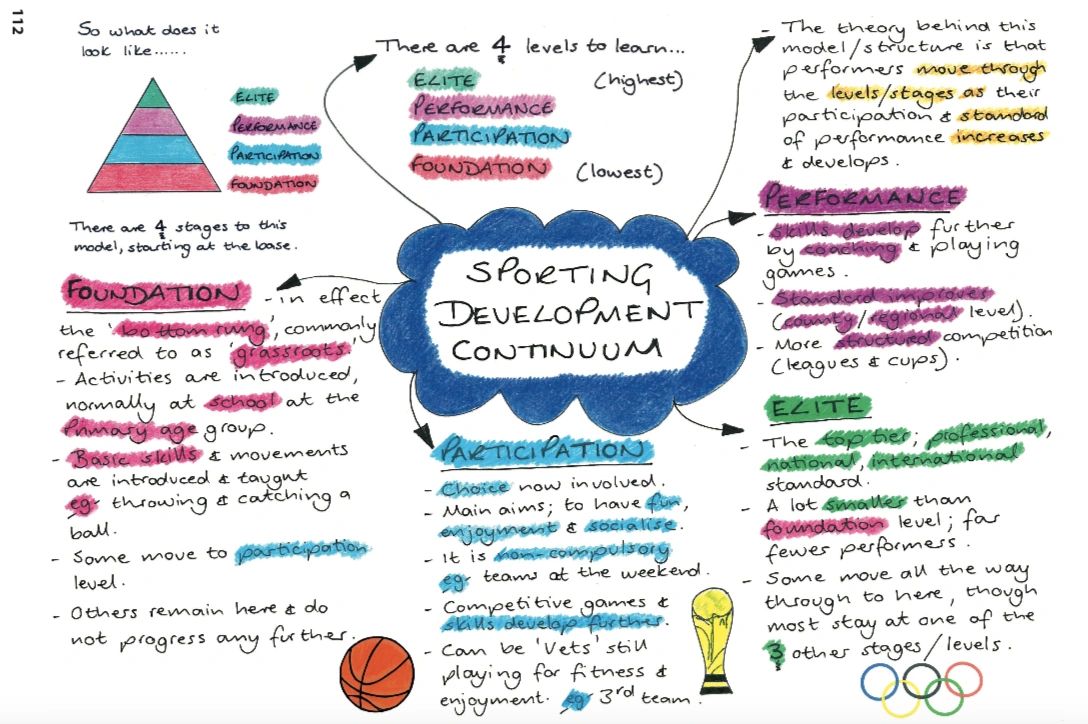 112
So what does it
look like......
ELITE
PERFORMANCE
PARTICIPATION
FOUNDATION
There are 4 stages to this
model, starting at the base.
There are 4 levels to learn...
ELITE (highest)
PERFORMANCE
PARTICIPATION
FOUNDATION (lowest)
- The theory behind this
model/structure is that
performers move through
the levels/stages as their
participation & standard
of performance increases
& develops.
SPORTING
DEVELOPMENT
CONTINUUM
FOUNDATION - in effect
the 'bottom rung', commonly
referred to as 'grassroots'.
- Activities are introduced,
normally at school at the
Primary age group.
- Basic skills & movements
are introduced & taught
eg throwing & catching a
ball.
- Some move to participation
level.
- Others remain here & do
not progress any further.
PARTICIPATION
- Choice now involved.
- Main aims; to have fun,
enjoyment & socialise.
- It is non-compulsory
eg teams at the weekend.
- Competitive games &
skills develop further.
- Can be 'Vets' still
playing for fitness &
enjoyment. eg 3rd team.
PERFORMANCE
- Skills develop further
by coaching & playing
games.
- Standard improves
(county/regional level).
- More structured competition
(leagues & cups).
ELITE
- The top tier; professional,
national, international
standard.
- A lot smaller than
foundation level; far
fewer performers.
- Some move all the way
through to here, though
most stay at one of the
3 other stages/levels.